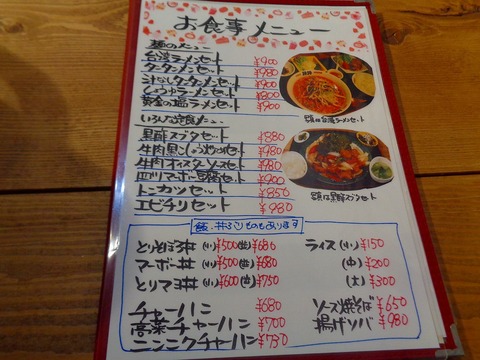 お食事メニュー
麺のメニュー
台湾ラーメンセット ¥900
タンタンメンセット ¥980
汁なしタンタンメンセット ¥900
とんこつラーメンセット ¥800
黄金の塩ラーメンセット ¥900
いろんな定食メニュー
黒酢スブタセット ¥880
牛肉黒コショウ炒めセット ¥980
牛肉オイスターソースセット ¥980
四川マーボー豆腐セット ¥900
トーカツセット ¥850
エビチリセット ¥980
写真は台湾ラーメンセット
写真は黒酢スブタセット
飯、丼ぶりものもあります
とりそぼろ丼 (小)¥500 (並)¥680
マーボー丼 (小)¥500 (並)¥680
とりマヨ丼 (小)¥600 (並)¥750
チャーハン ¥680
高菜チャーハン ¥700
ニンニクチャーハン ¥730
ライス (小) ¥150
(中) ¥200
(大) ¥300
ソース焼そば ¥650
揚げソバ ¥980